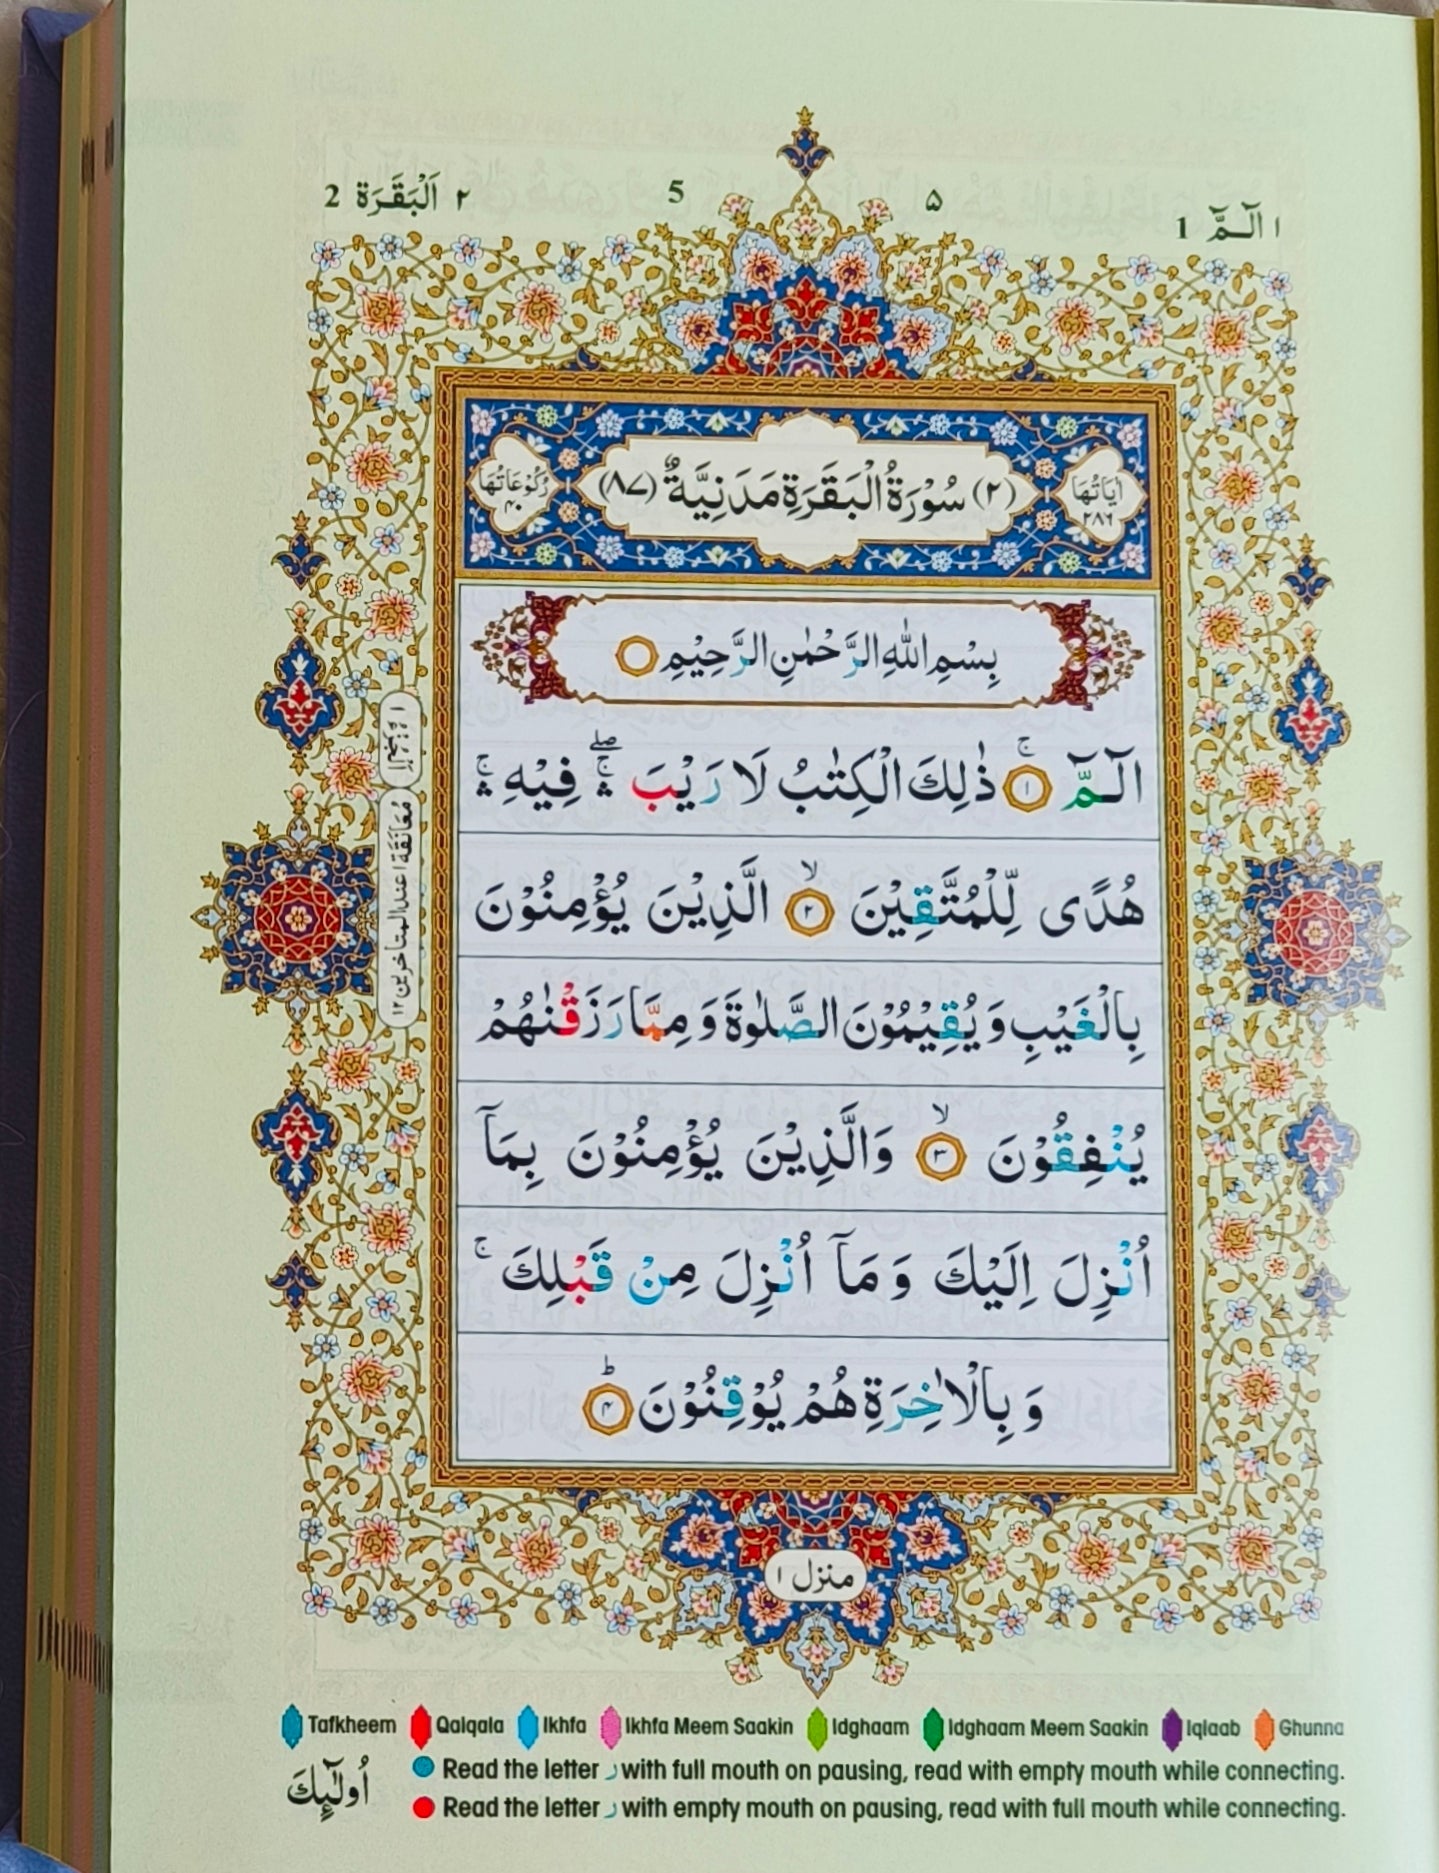 2 اَلْبَقَرَة ٢
5
۵
1 الٓـمّٓ ١
اٰيَاتُهَا ٢٨٦
(٢) سُوْرَةُ الْبَقَرَةِ مَدَنِيَّةٌ (٨٧)
رُكُوْعَاتُهَا ٤٠
بِسْمِ اللّٰهِ الرَّحْمٰنِ الرَّحِيْمِ
الٓـمّٓ ۚ ١ ذٰلِكَ الْكِتٰبُ لَا رَيْبَ ۛۚۖ فِيْهِ ۛۚ
هُدًى لِّلْمُتَّقِيْنَ ۙ ٢ الَّذِيْنَ يُؤْمِنُوْنَ
بِالْغَيْبِ وَيُقِيْمُوْنَ الصَّلٰوةَ وَمِمَّا رَزَقْنٰهُمْ
يُنْفِقُوْنَ ۙ ٣ وَالَّذِيْنَ يُؤْمِنُوْنَ بِمَآ
اُنْزِلَ اِلَيْكَ وَمَآ اُنْزِلَ مِنْ قَبْلِكَ ۚ
وَبِالْاٰخِرَةِ هُمْ يُوْقِنُوْنَ ؕ ۴
معَانَقَة ١ عند المتاخرين ١٢
منزل ١
Tafkheem Qalqala Ikhfa Ikhfa Meem Saakin Idghaam Idghaam Meem Saakin Iqlaab Ghunna
Read the letter ر with full mouth on pausing, read with empty mouth while connecting.
Read the letter ر with empty mouth on pausing, read with full mouth while connecting.
اُولٰٓئِكَ